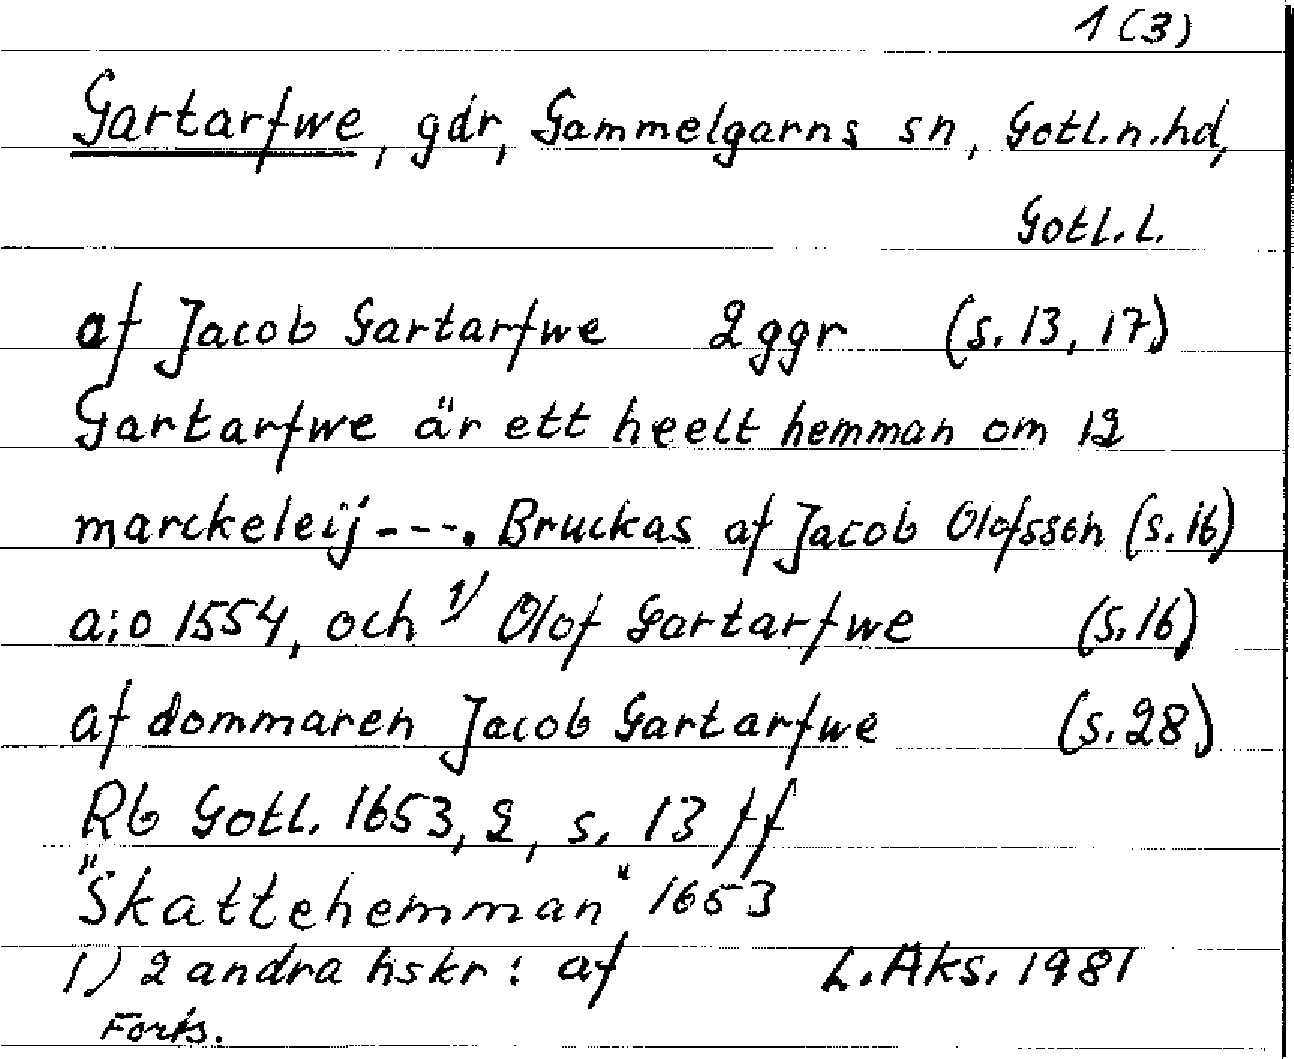 1 (3)
Gartarfwe, gdr, Gammelgarns sn, Gotl.n.hd,
Gotl.l.
af Jacob Gartarfwe 2 ggr (s. 13, 17)
Gartarfwe är ett heelt hemman om 12
marckeleij ---. Bruckas af Jacob Olofsson (s. 16)
a:o 1554, och 1/ Olof Gartarfwe (s. 16)
af dommaren Jacob Gartarfwe (s. 28)
Rb Gotl. 1653, 2, s. 13 ff
"Skattehemman" 1653
1) 2 andra hskr: af L. Aks. 1981
Forts.